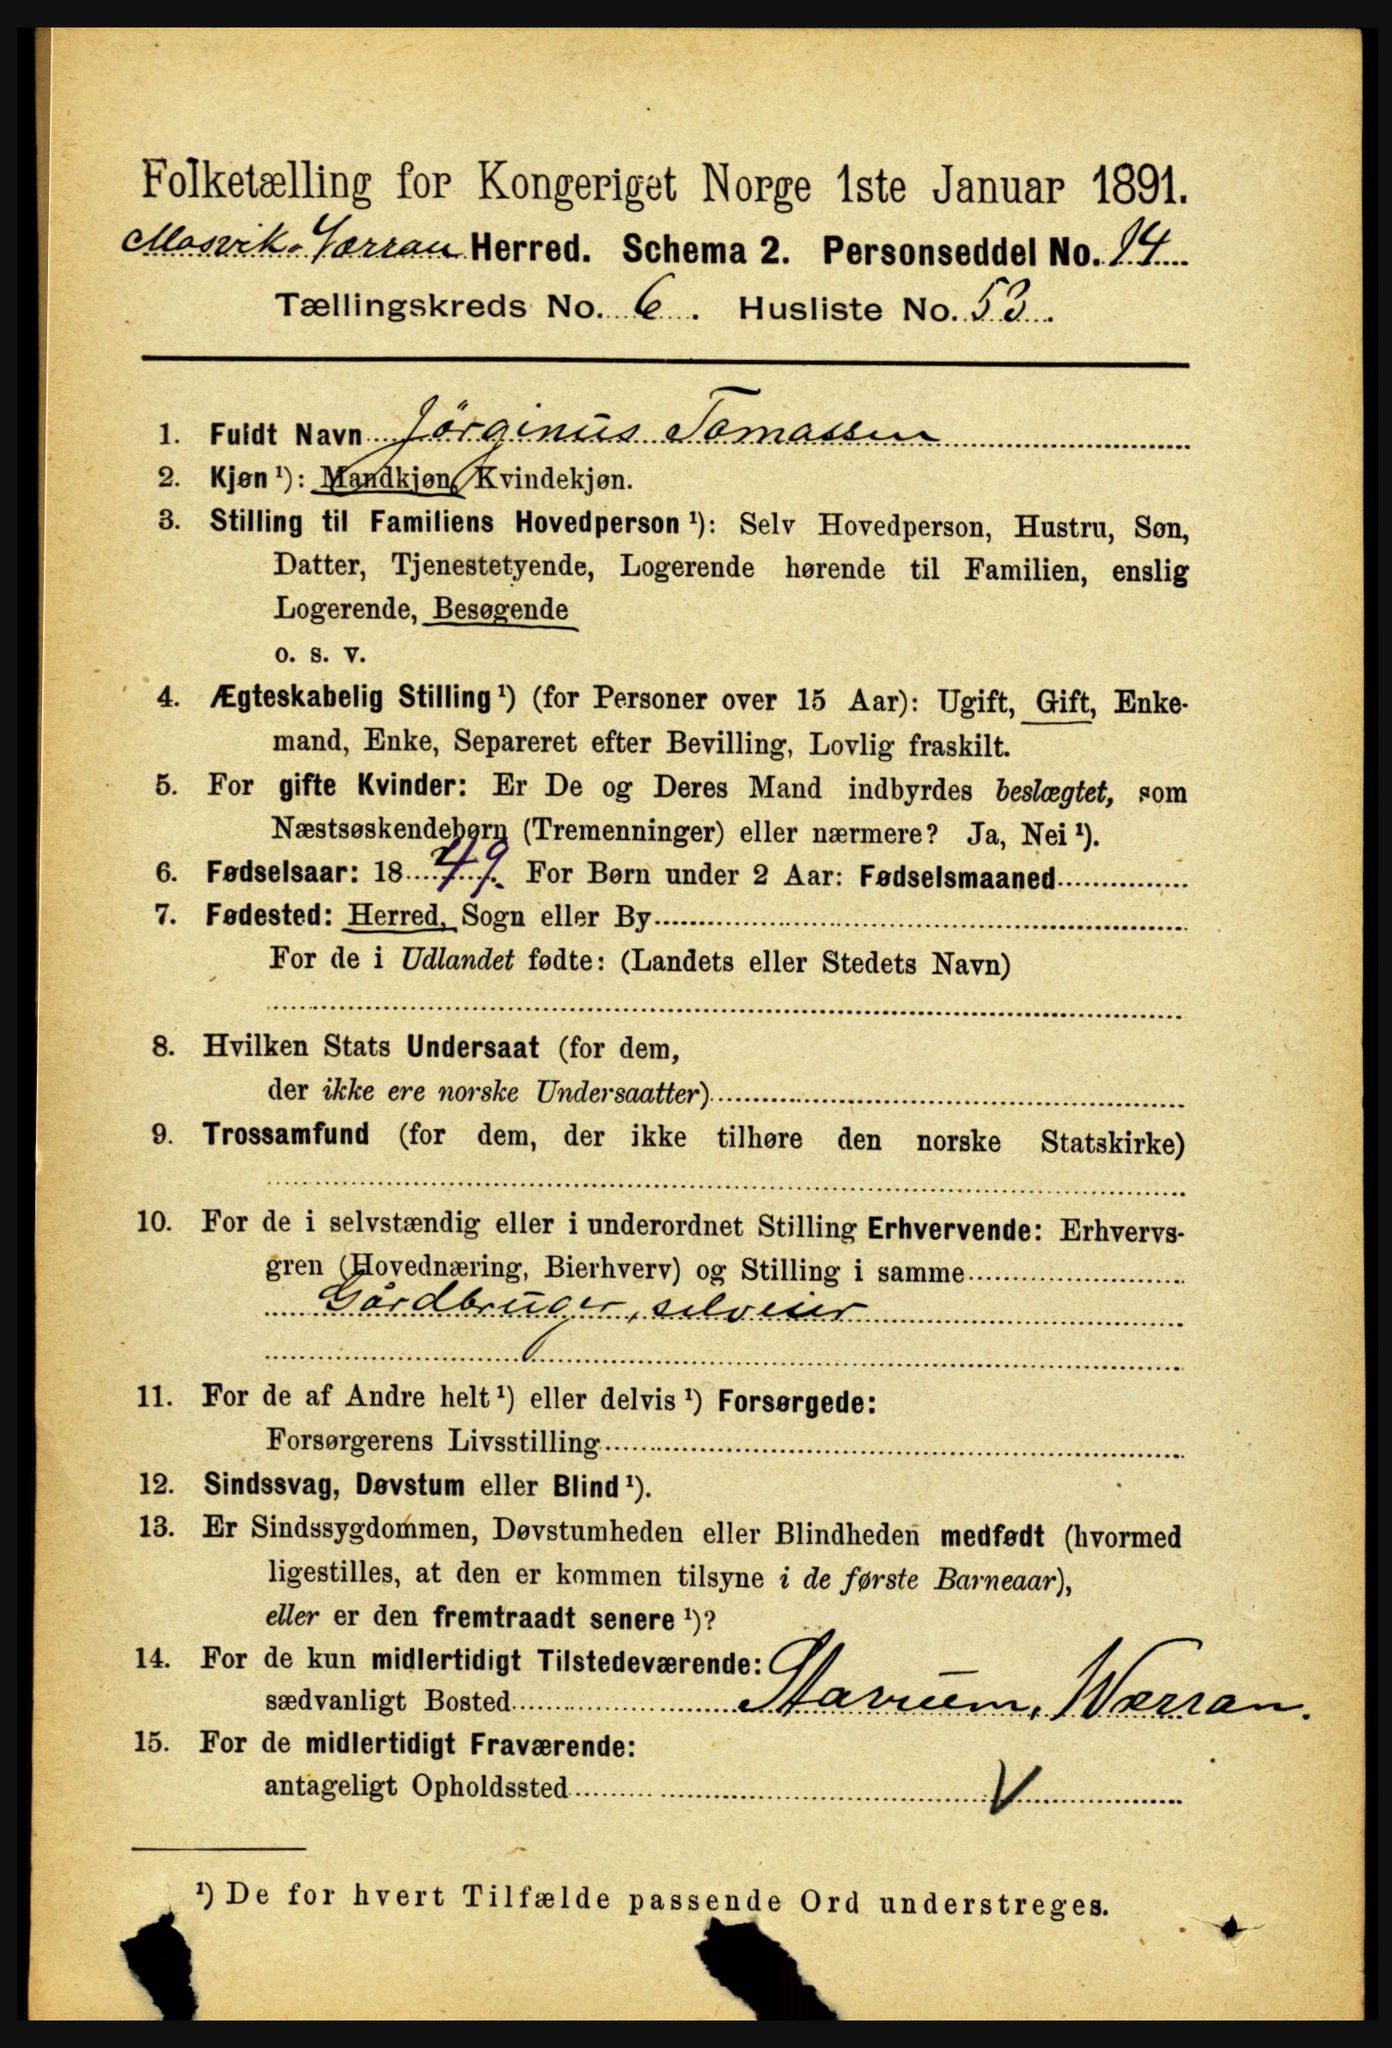 Folketælling for Kongeriget Norge 1ste Januar 1891.
Mosvik-Værran Herred. Schema 2. Personseddel No. 14
Tællingskreds No. 6. Husliste No. 53.
1. Fuldt Navn Jörginus Tomassen
2. Kjøn ¹): Mandkjøn, Kvindekjøn.
3. Stilling til Familiens Hovedperson ¹): Selv Hovedperson, Hustru, Søn,
Datter, Tjenestetyende, Logerende hørende til Familien, enslig
Logerende, Besøgende
o. s. v.
4. Ægteskabelig Stilling ¹) (for Personer over 15 Aar): Ugift, Gift, Enke-
mand, Enke, Separeret efter Bevilling, Lovlig fraskilt.
5. For gifte Kvinder: Er De og Deres Mand indbyrdes beslægtet, som
Næstsøskendebørn (Tremenninger) eller nærmere? Ja, Nei ¹).
6. Fødselsaar: 1849. For Børn under 2 Aar: Fødselsmaaned
7. Fødested: Herred, Sogn eller By
For de i Udlandet fødte: (Landets eller Stedets Navn)
8. Hvilken Stats Undersaat (for dem,
der ikke ere norske Undersaatter)
9. Trossamfund (for dem, der ikke tilhøre den norske Statskirke)
10. For de i selvstændig eller i underordnet Stilling Erhvervende: Erhvervs-
gren (Hovednæring, Bierhverv) og Stilling i samme
Gårdbruger, selveier
11. For de af Andre helt ¹) eller delvis ¹) Forsørgede:
Forsørgerens Livsstilling
12. Sindssvag, Døvstum eller Blind ¹).
13. Er Sindssygdommen, Døvstumheden eller Blindheden medfødt (hvormed
ligestilles, at den er kommen tilsyne i de første Barneaar),
eller er den fremtraadt senere ¹)?
14. For de kun midlertidigt Tilstedeværende:
sædvanligt Bosted Stavrum, Værran.
15. For de midlertidigt Fraværende:
antageligt Opholdssted V
¹) De for hvert Tilfælde passende Ord understreges.